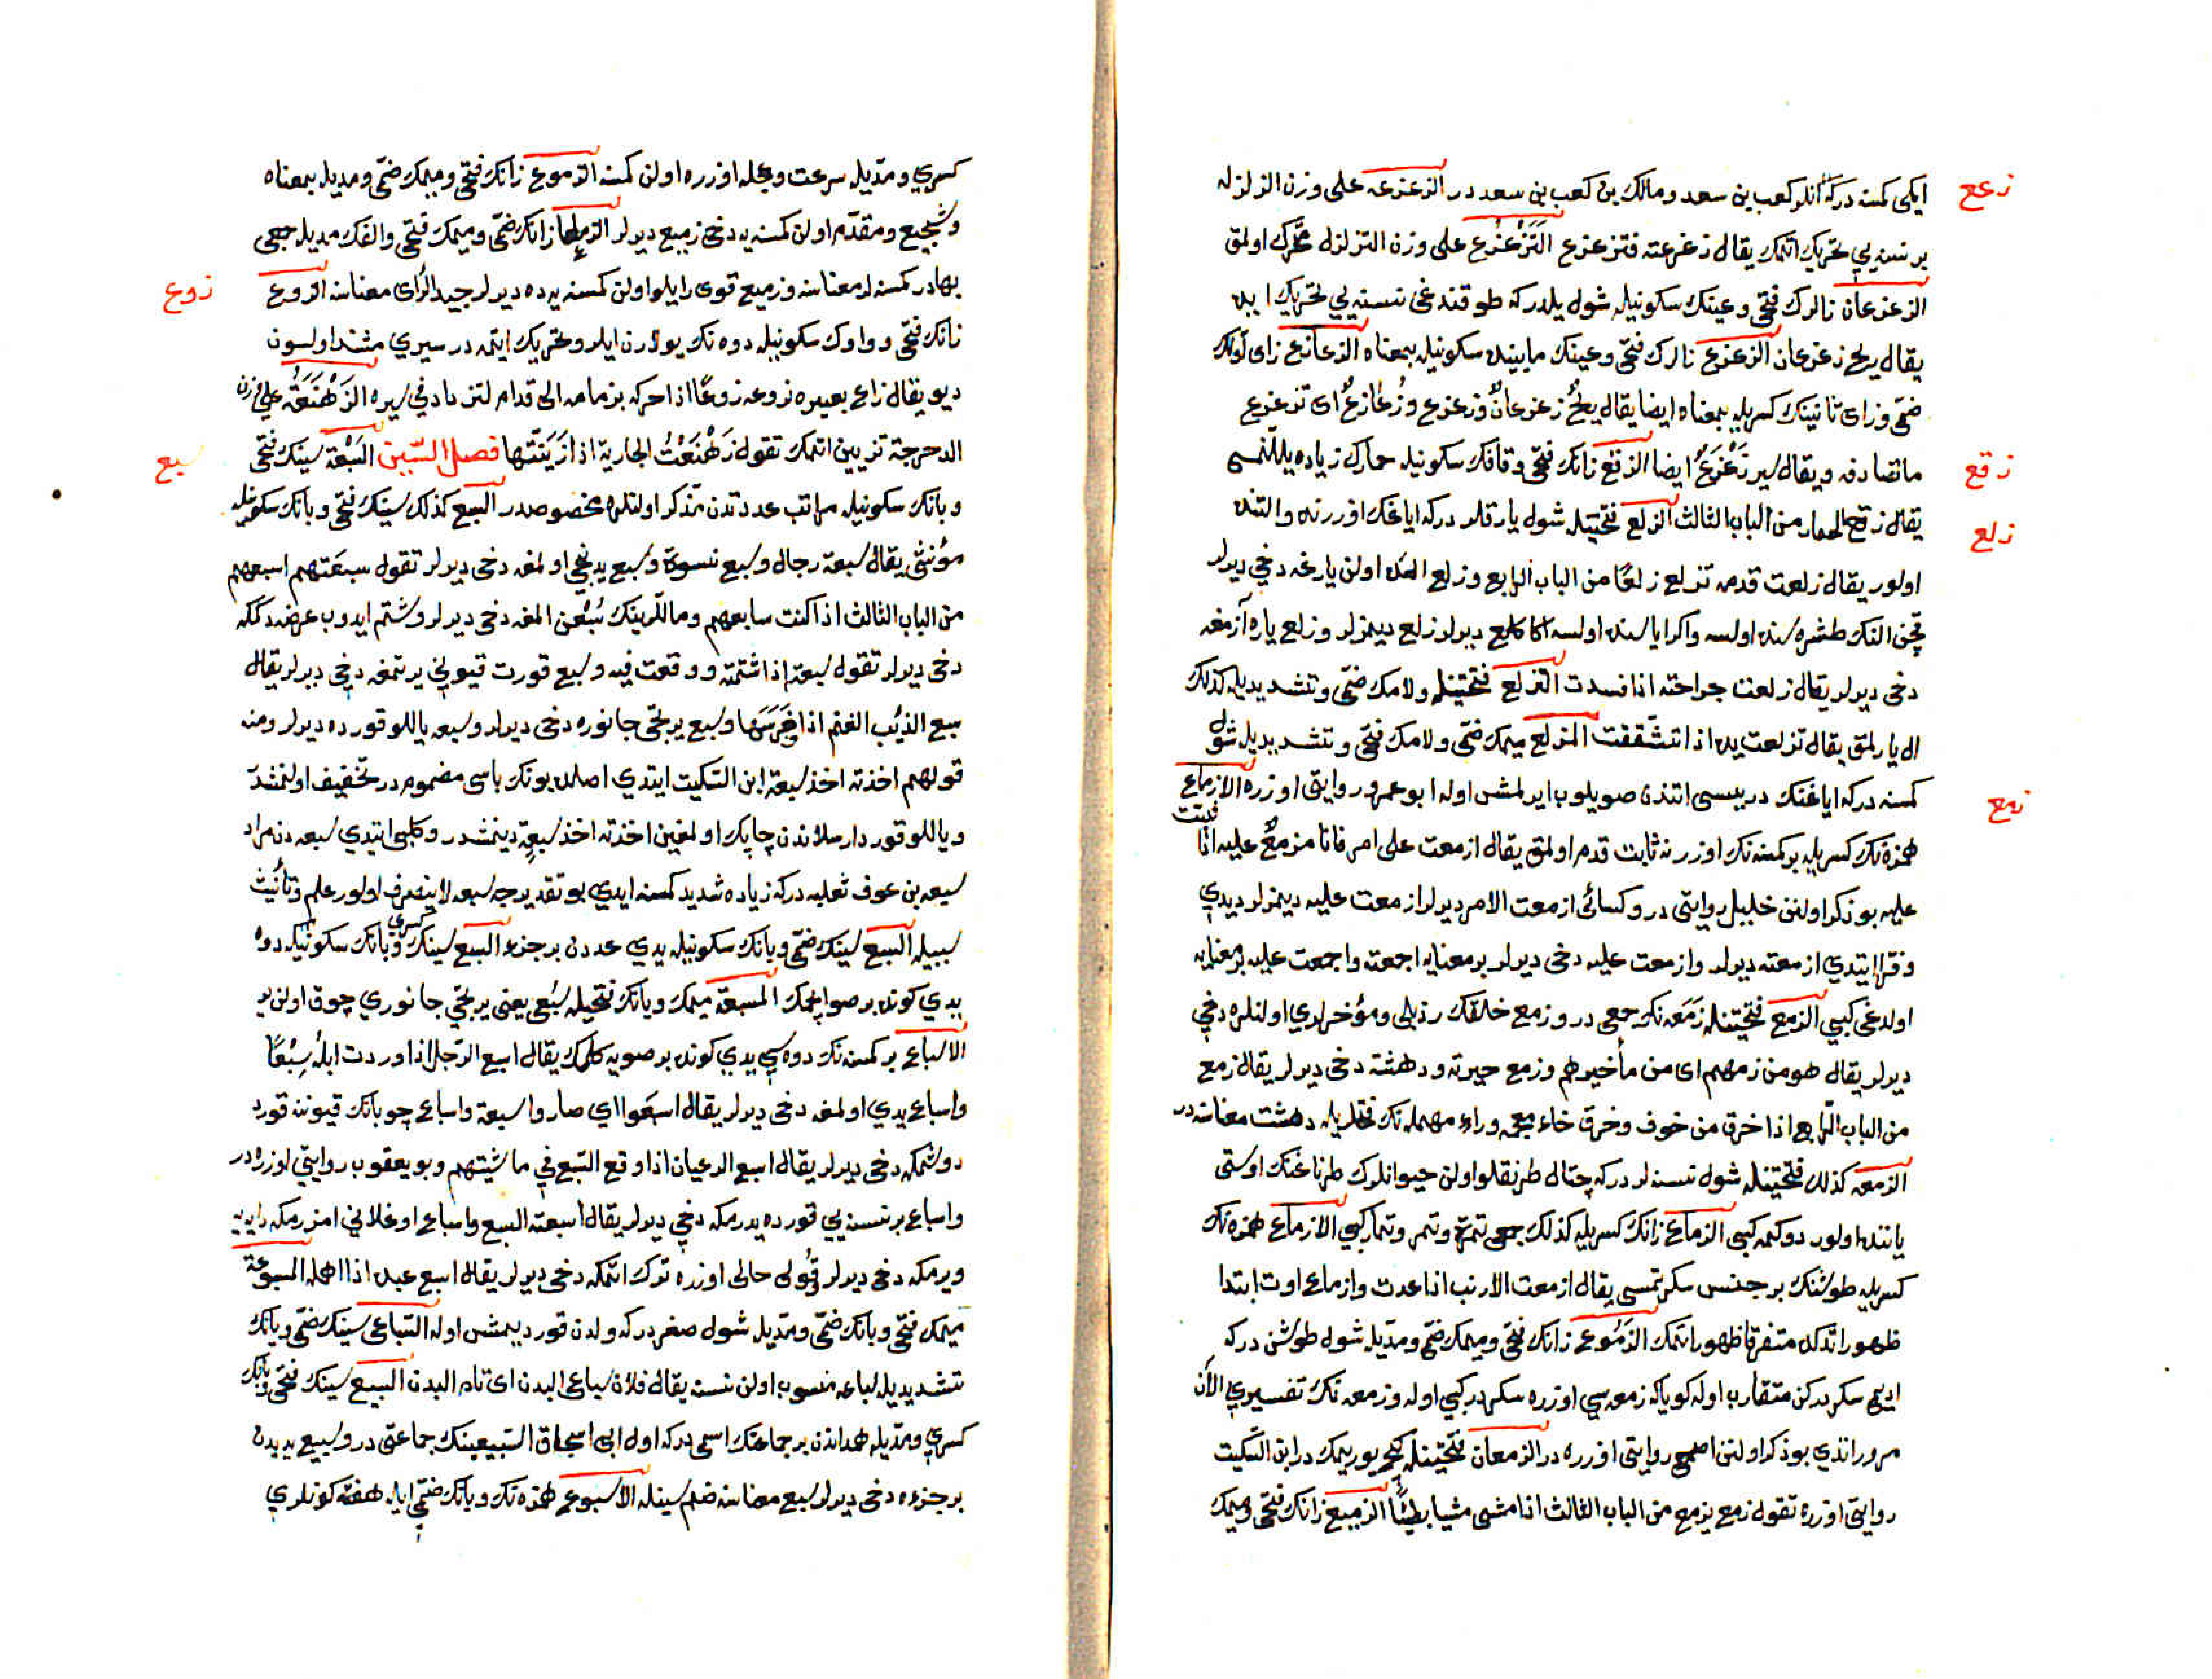 زعع
ايكى كمسنه دركه انلر كعب بن سعد ومالك بن كعب بن سعد در الزعزعه على وزن الزلزله
بر نسنه يي تحريك اتمك يقال زعزعته فتزعزع التَزَعْزُع على وزن التزلزله محرّك اولمق
الزعزعان زالرك فتحى وعينك سكونيله شول يلدركه طوقندغى نسنه يي تحريك ايده
يقال ريح زعزعان الزعزع زالرك فتحى وعينك مابينده سكونيله بمعناه الزعازع زاى اولك
ضمى وزاى ثانينك كسريله بمعناه ايضا يقال ريحٌ زعزعانٌ وزعزع وزُعازعٌ اى تزعزع
زقع
ما تصادفه ويقال سير زَعْزَعٌ ايضا الزقع زانك فتحى وقافك سكونيله حمارك زياده يللنمسى
زلع
يقال زقع الحمار من الباب الثالث الزلع فتحتيله شول يارقلر دركه اياغك اوزرنده والتنده
اولور يقال زلعت قدمه تزلع زلعًا من الباب الرابع وزلع الده اولن ياريغه دخي ديرلر
قچن النك طشره سنده اولسه واكر اياسنده اولسه اكا كلع ديرلر زلع ديمزلر وزلع ياره آزمغه
دخى ديرلر يقال زلعت جراحته اذا فسدت التزلع فتحتيله ولامك ضمى وتشديديله كذلك
ال يارلمق يقال تزلعت يده اذا تشققت المزلع ميمك ضمى ولامك فتحى وتشديديله شول
زمع
كمسنه دركه اياغنك دريسى اتندن صويلوب ايرلمش اوله ابو عمرو روايتى اوزره الازماع
همزه نك كسريله بر كمسنه نك اوزرنه ثابت قدم اولمق يقال ازمعت على امر فانا مزمعٌ عليه اذا فبتت
عليه بو ذكر اولنن خليل روايتى در وكسائى ازمعت الامر ديرلر ازمعت عليه ديمزلر ديدي
وفرا ايتدي ازمعته ديرلر وازمعت عليه دخى ديرلر بر معنايه اجمعته واجمعت عليه بر معنايه
اولدغى كبي الزمع فتحتيله زَمَعه نك جمعى در وزمع خلقك رذيلى ومؤخرلري اولنلره دخي
ديرلر يقال هو من زمعهم اى من مآخيرهم وزمع حيرته ودهشته دخى ديرلر يقال زمع
من الباب الرابع اذا خرق من خوف وخرق خاء معجمه وراء مهمله نك فتحلريله دهشت معناسنه در
الزمعه كذلك فتحتيله شول نسنه لر دركه چتال طرنقلو اولن حيوانلرك طرناغنك اوستى
ياننده اولور دوكمه كبى الزماع زانك كسريله كذلك جمعى تمرة وتمر وتمار كبي الازماع همزه نك
كسريله طوشنك بر جنس سكرتمسى يقال ازمعت الارنب اذا عدت وازماع اوت ابتدا
ظهور اتدكده متفرقا ظهور اتمك الزَمُوع زانك فتحى وميمك ضمى ومدّيله شول طوشن دركه
اديمي سكردركن متقارب اوله كويا كه زمعه سي اوزره سكردر كبي اوله وزمعه نك تفسيري الآن
مرور اتدي بو ذكر اولنن اصمعي روايتى اوزره در الزمعان فتحتيله كچ يوريمك در ابن السّكيت
روايتى اوزره تقول زمع يزمع من الباب الثالث اذا مشى مشيا بطيئًا الزميع زانك فتحى وميمك
كسري ومدّيله سرعت وعجله اوزره اولن كمسنه الزموع زانك فتحى وميمك ضمى ومديله بمعناه
وشجيع ومقدّم اولن كمسنه يه دخى زميع ديرلر الزمعا زانك ضمى وميمك فتحى والفك مديله جمعى
زوع
بهادر كمسنه لر معناسنه وزميع قوى رايلو اولن كمسنه يه ده ديرلر جيد الرأى معناسنه الزوع
زانك فتحى وواوك سكونيله دوه نك يولارن ايلرو تحريك ايتمه در سيري مشتد اولسون
ديو يقال زاع بعيره يزوعه زوعًا اذا حركه بزمامه الى قدام ليزداد في سيره الزَهْنَعَةُ على وزن
سبع
الدحرجة تزيين اتمك تقول زَهْنَعْتُ الجارية اذا زَيَنّتها فصل السّين السَبْعَة سينك فتحى
وبانك سكونيله مراتب عددتدن مذكر اولنلره مخصوصدر السبع كذلك سينك فتحى وبانك سكونيله
مؤنثى يقال سبعة رجال وسبع نسوة وسبع يدنجي اولمغه دخى ديرلر تقول سبعتهم اسبعهم
من الباب الثالث اذا كنت سابعهم ومالّرينك سُبْعن المغه دخى ديرلر وشتم ايدوب عرضه دكمكه
دخى ديرلر تقول سبعته اذا شتمته ووقعت فيه وسبع قورت قيوني يرتمغه دخي ديرلر يقال
سبع الذئب الغنم اذا فَرَسَها وسبع يرتجى جانوره دخى ديرلر وسبعه ياللو قورده ديرلر ومنه
قولهم اخذته اخذ سبعة ابن السّكيت ايتدي اصلى بونك باسى مضمومه در تخفيف اولنمشدر
وياللو قورد ارسلاندن چاپك اولمغين اخذته اخذ سبعةٍ دينمشدر وكلبى ايتدي سبعه دن مراد
سبعه بن عوف ثعلبه دركه زياده شديد كمسنه ايدي بو تقديرجه سبعه لاينصرف اولور علم وتأنيث
سببيله السبع سينك ضمى وبانك سكونيله يدي عددن بر جزء السبع سينك كسري وبانك سكونيله دوه
يدي كونده بر صو ايچمك المسبعة ميمك وبانك فتحيله سَبُعى يعنى يرتجي جانوري چوق اولن ير
الاسباع بر كمسنه نك دوه سي يدي كونده بر صويه كلمك يقال اسبع الرّجل اذا وردت ابله سِبْعًا
واسباع يدي اولمغه دخى ديرلر يقال اسبَعوا اي صاروا سبعة واسباع چوبانك قيوننه قورد
دوشمكه دخى ديرلر يقال اسبع الرعيان اذا وقع السّبع في ماشيتهم وبو يعقوب روايتي اوزره در
واسباع بر نسنه يي قورده يدرمكه دخي ديرلر يقال اسبعته السبع واسباع اوغلاني امزرمكه دايه يه
ويرمكه دخى ديرلر وقُولى حالى اوزره ترك اتمكه دخى ديرلر يقال اسبع عبده اذا اهمله المسبوعة
ميمك فتحى وبانك ضمى ومدّيله شول صغر دركه ولدن قورد يمش اوله السّباعى سينك ضمى وبانك
تشديديله سباعه منسوب اولن نسنه يقال فلان سباعى البدن اى تام البدن السبيع سينك فتحى وبانك
كسري ومدّيله همداندن بر جماعتك اسمى دركه اول ابى اسحاق السّبيعينك جماعتى در وسبيع يديدن
بر جزءه دخى ديرلر سبع معناسنه ضم سينله الاسبوع همزه نك وبانك ضمّى ايله هفته كونلري